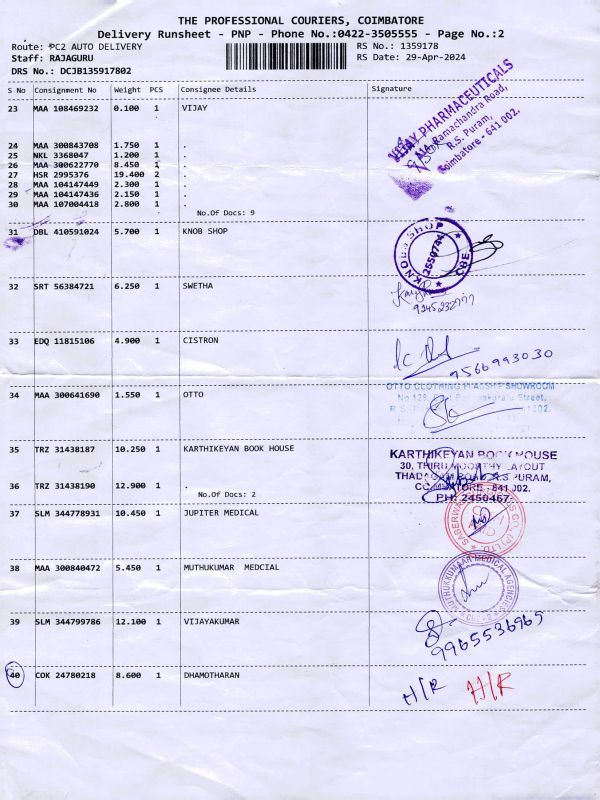 THE PROFESSIONAL COURIERS, COIMBATORE
Delivery Runsheet - PNP - Phone No.:0422-3505555 - Page No.:2
Route: PC2 AUTO DELIVERY RS No.: 1359178
Staff: RAJAGURU RS Date: 29-Apr-2024
DRS No.: DCJB135917802
S No Consignment No Weight PCS Consignee Details Signature
23 MAA 108469232 0.100 1 VIJAY
VIJAY PHARMACEUTICALS
Ramachandra Road,
R.S. Puram,
Coimbatore - 641 002.
24 MAA 300843708 1.750 1 .
25 NKL 3368047 1.200 1 .
26 MAA 300622770 8.450 1 .
27 HSR 2995376 19.400 2 .
28 MAA 104147449 2.300 1 .
29 MAA 104147436 2.150 1 .
30 MAA 107004418 2.800 1 .
No.Of Docs: 9
31 DBL 410591024 5.700 1 KNOB SHOP
KNOB SHOP
2550744
CBE
32 SRT 56384721 6.250 1 SWETHA
33 EDQ 11815106 4.900 1 CISTRON
9566993030
34 MAA 300641690 1.550 1 OTTO
OTTO CLOTHING FLAGSHIP SHOWROOM
35 TRZ 31438187 10.250 1 KARTHIKEYAN BOOK HOUSE
KARTHIKEYAN BOOK HOUSE
30, THIRU MOORTHY LAYOUT
THADAGAM ROAD, R.S PURAM,
COIMBATORE - 641 002.
PH: 2450467
36 TRZ 31438190 12.900 1 .
No.Of Docs: 2
37 SLM 344778931 10.450 1 JUPITER MEDICAL
38 MAA 300840472 5.450 1 MUTHUKUMAR MEDCIAL
MUTHUKKUMAAR MEDICAL AGENCIES
39 SLM 344799786 12.100 1 VIJAYAKUMAR
9965536965
40 COK 24780218 8.600 1 DHAMOTHARAN
H/R H/R